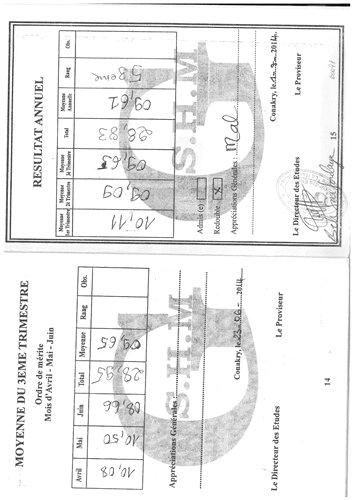 MOYENNE DU 3EME TRIMESTRE
Ordre de mérite
Mois d'Avril - Mai - Juin
Avril Mai Juin Total Moyenne Rang Obs.
10,08 10,50 08,66 28,95 09,65
Appréciations Générales :
S.H.M
Conakry, le 2014
Le Directeur des Etudes Le Proviseur
14
RESULTAT ANNUEL
Moyenne 1er Trimestre Moyenne 2è Trimestre Moyenne 3è Trimestre Total Moyenne Annuelle Rang Obs.
10,11 09,09 09,65 28,83 09,61
Admis (e)
Redouble x
Appréciations Générales : Mal
S.H.M
Conakry, le 2014
Le Directeur des Etudes Le Proviseur
15